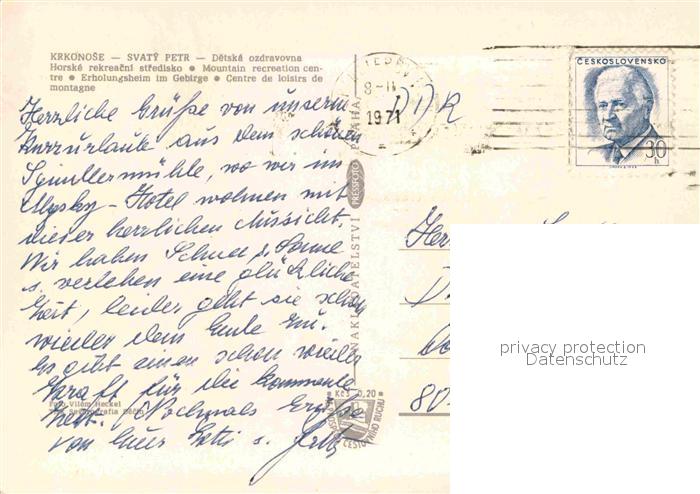 KRKONOŠE — SVATÝ PETR — Dětská ozdravovna
Horské rekreační středisko • Mountain recreation cen-
tre • Erholungsheim im Gebirge • Centre de loisirs de
montagne
Herzliche Grüße von unserm
Kurzurlaub aus dem schönen
Spindlermühle, wo wir im
Hotel wohnen mit
dieser herrlichen Aussicht.
Wir haben Schnee u. Sonne
u. verleben eine glückliche
Zeit, leider geht sie schon
wieder dem Ende zu.
Es gibt einem schon wieder
Kraft für die kommende
Zeit. Nochmals Grüße
von Euer
Foto Vilém Heckel
Děčín
NAKLADATELSTVÍ PRESSFOTO PRAHA
Kčs 0,20
CESTOVNÍHO RUCHU
8-II
1971
DDR
ČESKOSLOVENSKO
30 h
80
privacy protection
Datenschutz